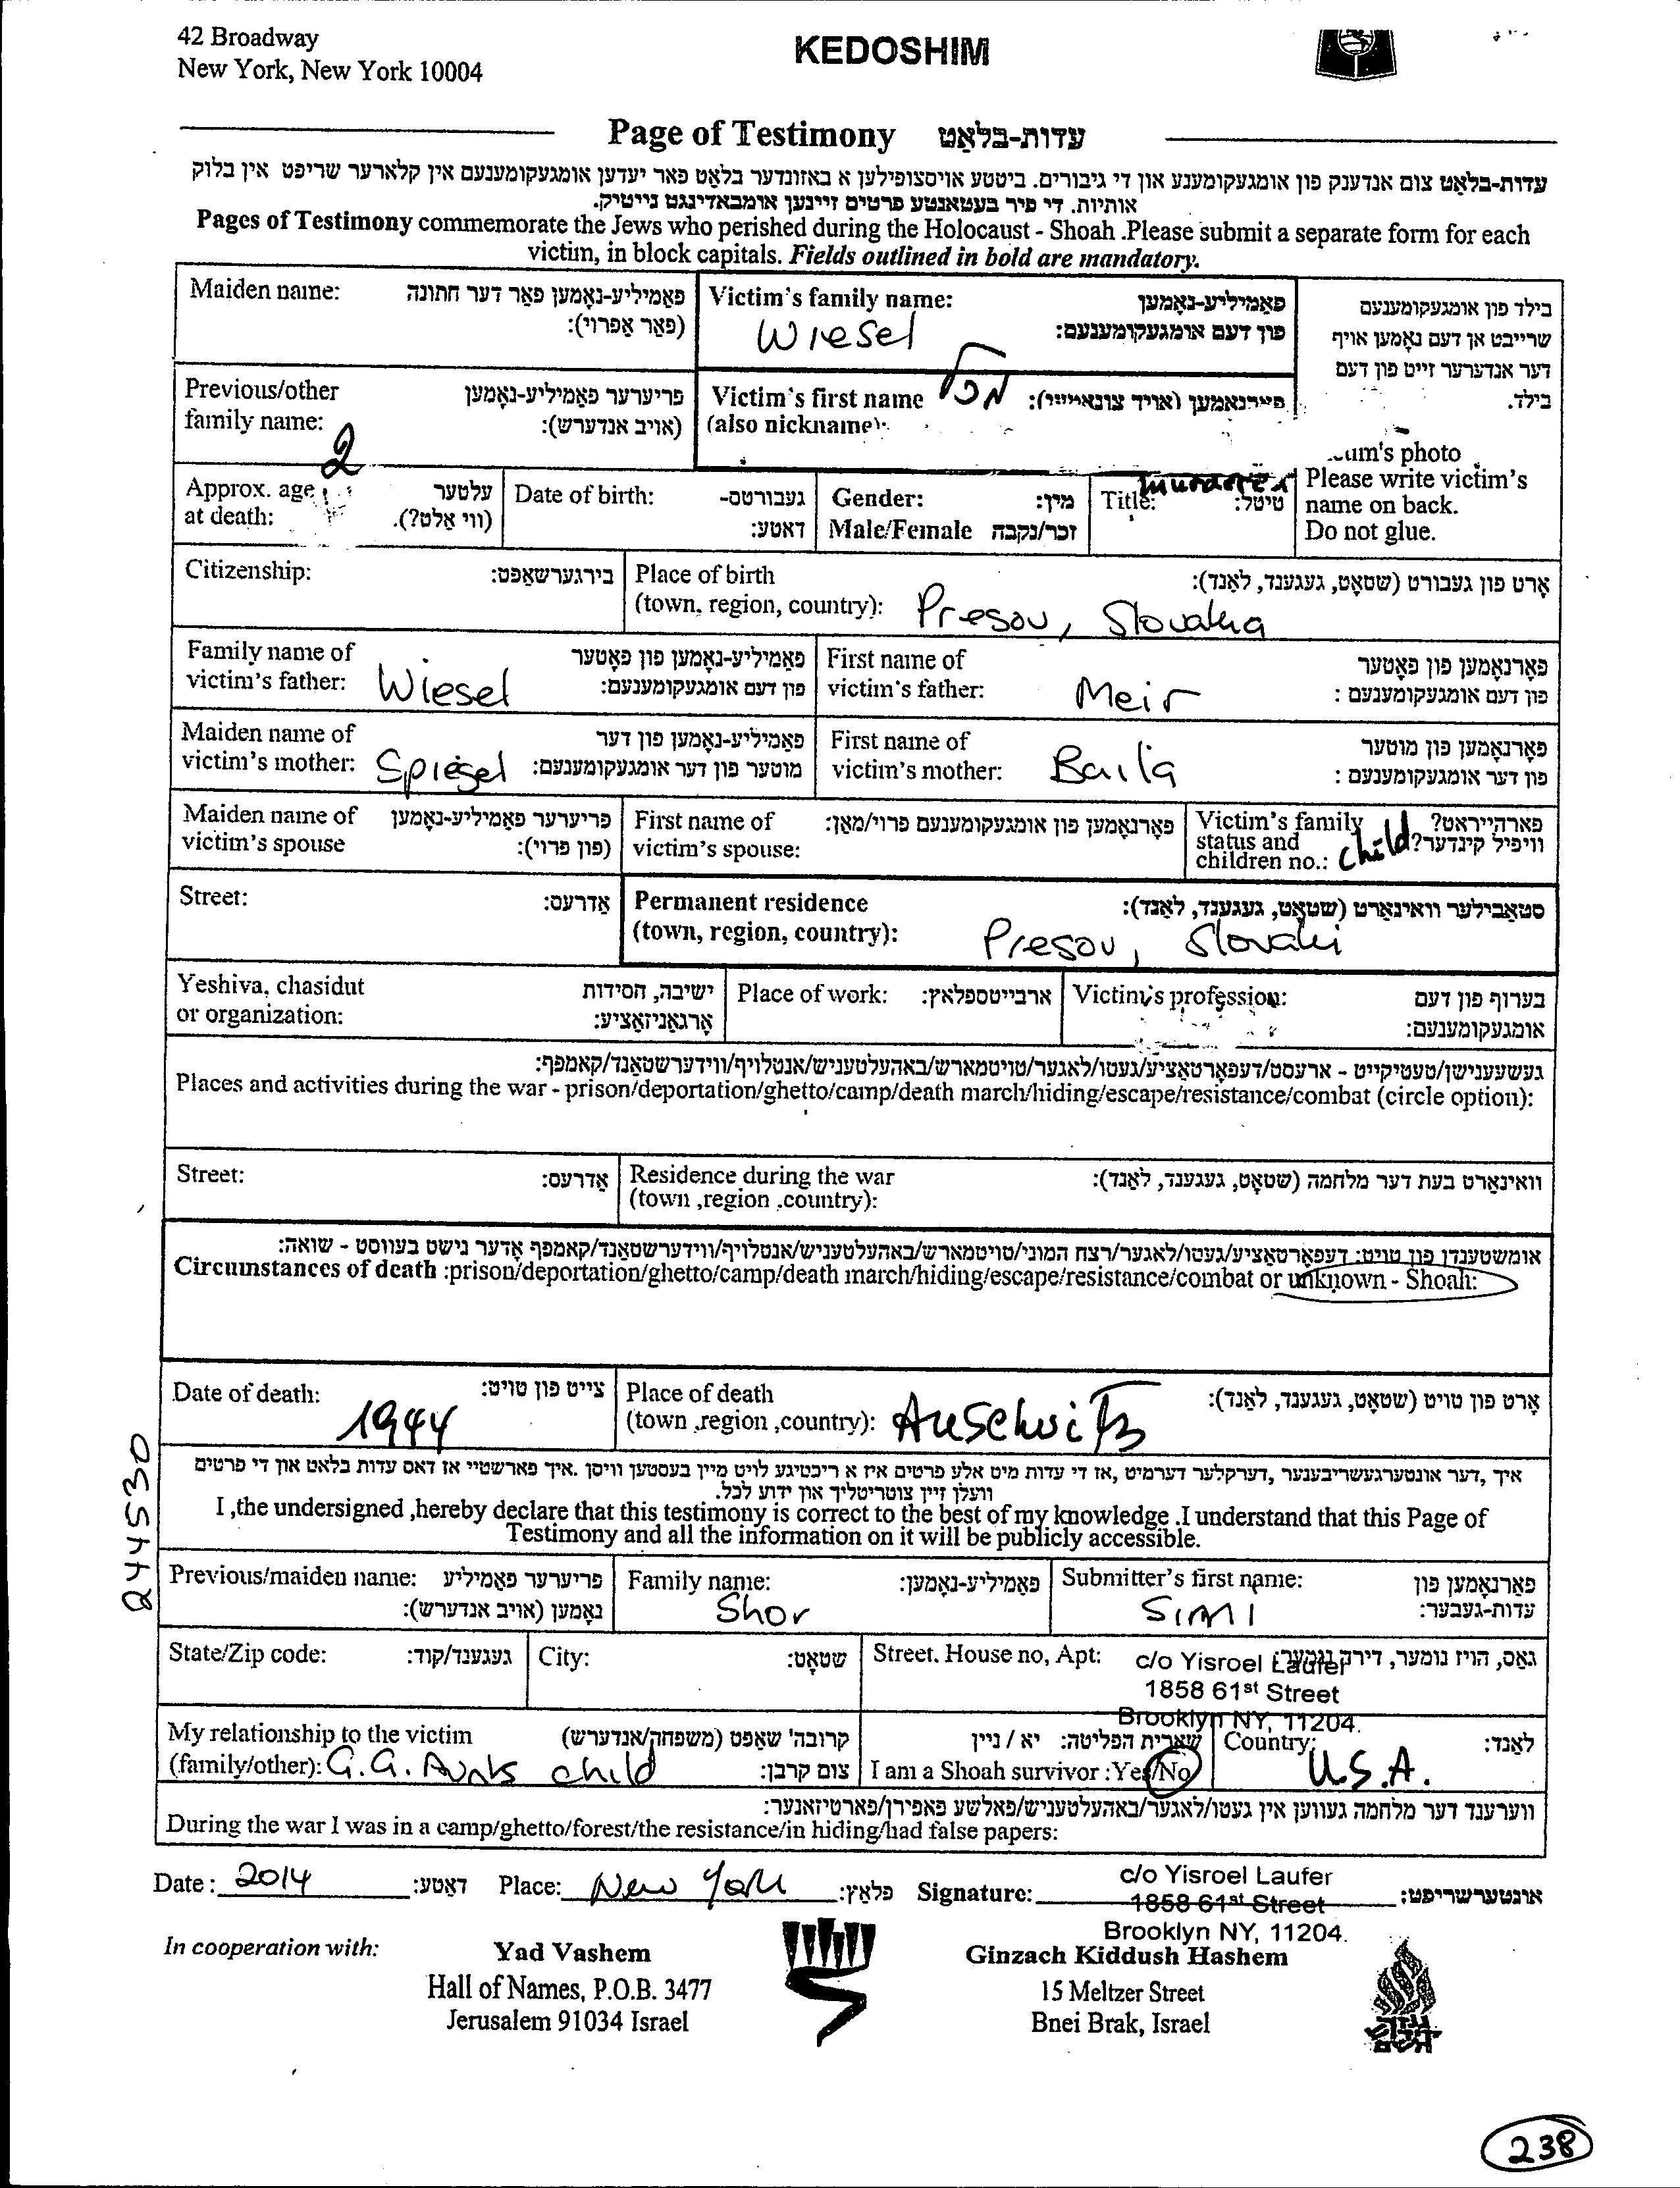 42 Broadway
New York, New York 10004
KEDOSHIM
Page of Testimony עדות-בלאַט
עדות-בלאַט צום אנדענק פון אומגעקומענע און די גיבורים. ביטטע אויסצופילען א באזונדער בלאַט פאר יעדען אומגעקומענעם אין קלארער שריפט אין בלוק
אותיות. די פיר בעטאנטע פרטים זיינען אומבאדינגט נייטיק.
Pages of Testimony commemorate the Jews who perished during the Holocaust - Shoah .Please submit a separate form for each
victim, in block capitals. Fields outlined in bold are mandatory.
Maiden name: פאַמיליע-נאָמען פאר דער חתונה
(פאַר אַפרוי):
Victim's family name: פאַמיליע-נאָמען
פון דעם אומגעקומענעם:
Wiesel
בילד פון אומגעקומענעם
שרייבט אן דעם נאָמען אויף
דער אנדערער זייט פון דעם
בילד.
Previous/other פריערער פאַמיליע-נאָמען
family name: (אויב אנדערש):
Victim's first name
(also nickname):
um's photo
Please write victim's
name on back.
Do not glue.
2
Approx. age עלטער
at death: (ווי אַלט?).
Date of birth: געבורטס-
דאטע:
Gender: מין:
Male/Female זכר/נקבה
Title: טיטל:
Citizenship: בירגערשאַפט:
Place of birth אָרט פון געבורט (שטאָט, געגענד, לאַנד):
(town, region, country): Presov, Slovakia
Family name of פאַמיליע-נאָמען פון פאָטער
victim's father: Wiesel פון דעם אומגעקומענעם:
First name of פאָרנאָמען פון פאָטער
victim's father: Meir פון דעם אומגעקומענעם :
Maiden name of פאַמיליע-נאָמען פון דער
victim's mother: Spiegel מוטער פון דער אומגעקומענעם:
First name of פאָרנאָמען פון מוטער
victim's mother: Baila פון דער אומגעקומענעם :
Maiden name of פריערער פאַמיליע-נאָמען
victim's spouse (פון פרוי):
First name of פאָרנאָמען פון אומגעקומענעם פרוי/מאַן:
victim's spouse:
Victim's family פארהייראט?
status and וויפיל קינדער?
children no.: child
Street: אַדרעס:
Permanent residence סטאַבילער וואוינאָרט (שטאָט, געגענד, לאַנד):
(town, region, country): Presov, Slovaki
Yeshiva, chasidut ישיבה, חסידות
or organization: אָרגאַניזאַציע:
Place of work: ארבייטספלאץ:
Victim's profession: בערוף פון דעם
אומגעקומענעם:
געשעענישן/טעטיקייט - ארעסט/דעפאָרטאַציע/געטו/לאַגער/טויטמארש/באַהעלטעניש/אנטלויף/ווידערשטאַנד/קאמפף:
Places and activities during the war - prison/deportation/ghetto/camp/death march/hiding/escape/resistance/combat (circle option):
Street: אַדרעס:
Residence during the war וואוינאָרט בעת דער מלחמה (שטאָט, געגענד, לאַנד):
(town ,region .country):
אומשטענדן פון טויט: דעפאָרטאַציע/געטו/לאגער/רצח המוני/טויטמארש/באהעלטעניש/אנטלויף/ווידערשטאַנד/קאמפף אָדער נישט בעווסט - שואה:
Circumstances of death :prison/deportation/ghetto/camp/death march/hiding/escape/resistance/combat or unknown - Shoah:
Date of death: צייט פון טויט:
1944
Place of death אָרט פון טויט (שטאָט, געגענד, לאַנד):
(town ,region ,country): Auschwitz
איך ,דער אונטערגעשריבענער ,דערקלער דערמיט ,אז די עדות מיט אלע פרטים איז א ריכטיגע לויט מיין בעסטען וויסן .איך פארשטיי אז דאס עדות בלאט און די פרטים
וועלן זיין צוטריטליך און ידוע לכל.
I ,the undersigned ,hereby declare that this testimony is correct to the best of my knowledge .I understand that this Page of
Testimony and all the information on it will be publicly accessible.
Previous/maiden name: פריערער פאַמיליע
נאָמען (אויב אנדערש):
Family name: פאַמיליע-נאָמען:
Shor
Submitter's first name: פאָרנאָמען פון
עדות-געבער:
SIMI
State/Zip code: געגענד/קוד:
City: שטאָט:
Street. House no, Apt: גאַס, הויז נומער, דירה נומער:
c/o Yisroel Laufer
1858 61st Street
Brooklyn NY, 11204.
My relationship to the victim קרובה' שאַפט (משפחה/אנדערש)
(family/other): G.G. Aunts child צום קרבן:
שארית הפליטה: יא / ניין
I am a Shoah survivor :Yes/No
Country: לאַנד:
U.S.A.
ווערענד דער מלחמה געווען אין געטו/לאגער/באהעלטעניש/פאלשע פאפירן/פארטיזאנער:
During the war I was in a camp/ghetto/forest/the resistance/in hiding/had false papers:
Date : 2014 דאַטע: Place: New York פלאַץ: Signature: אונטערשריפט:
c/o Yisroel Laufer
1858 61st Street
Brooklyn NY, 11204.
In cooperation with:
Yad Vashem
Hall of Names, P.O.B. 3477
Jerusalem 91034 Israel
Ginzach Kiddush Hashem
15 Meltzer Street
Bnei Brak, Israel
244530
238